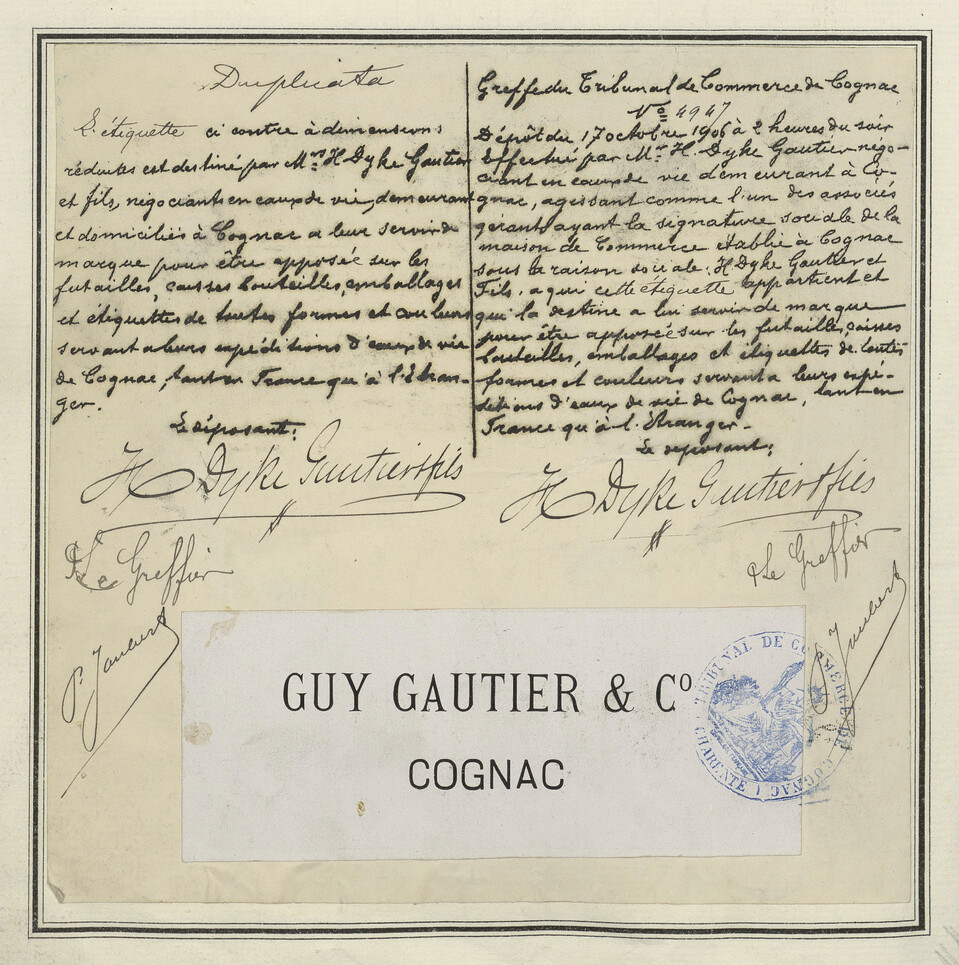 Duplicata
L'étiquette ci contre à dimensions
réduites est destiné par Mrs H. Dyke Gautier
et fils, négociants en eaux de vie, demeurant
et domiciliés à Cognac a leur servir de
marque pour être apposée sur les
futailles, caisses bouteilles, emballages
et étiquettes de toutes formes et couleurs
servant a leurs expéditions d'eaux de vie
de Cognac, tant en France qu'à l'Etran-
ger.
Le déposant:
H Dyke Gautier & fils
P Le Greffier
P. Jaubert
Greffe du Tribunal de Commerce de Cognac
No 4947
Dépôt du 17 octobre 1906 à 2 heures du soir
Effectué par Mr. H. Dyke Gautier négo-
ciant en eaux de vie demeurant à Co-
gnac, agissant comme l'un des associés
gérants ayant la signature sociale de la
maison de Commerce établie à Cognac
sous la raison sociale. H Dyke Gautier et
Fils. a qui cette étiquette appartient et
qui la destine a lui servir de marque
pour être apposée sur les futailles, caisses
bouteilles, emballages et étiquettes de toutes
formes et couleurs servant a leurs expé-
ditions d'eaux de vie de Cognac, tant en
France qu'à l'Etranger.
Le déposant:
H Dyke Gautier & fils
P Le Greffier
P. Jaubert
GUY GAUTIER & Cº
COGNAC
TRIBUNAL DE COMMERCE DE COGNAC (CHARENTE)